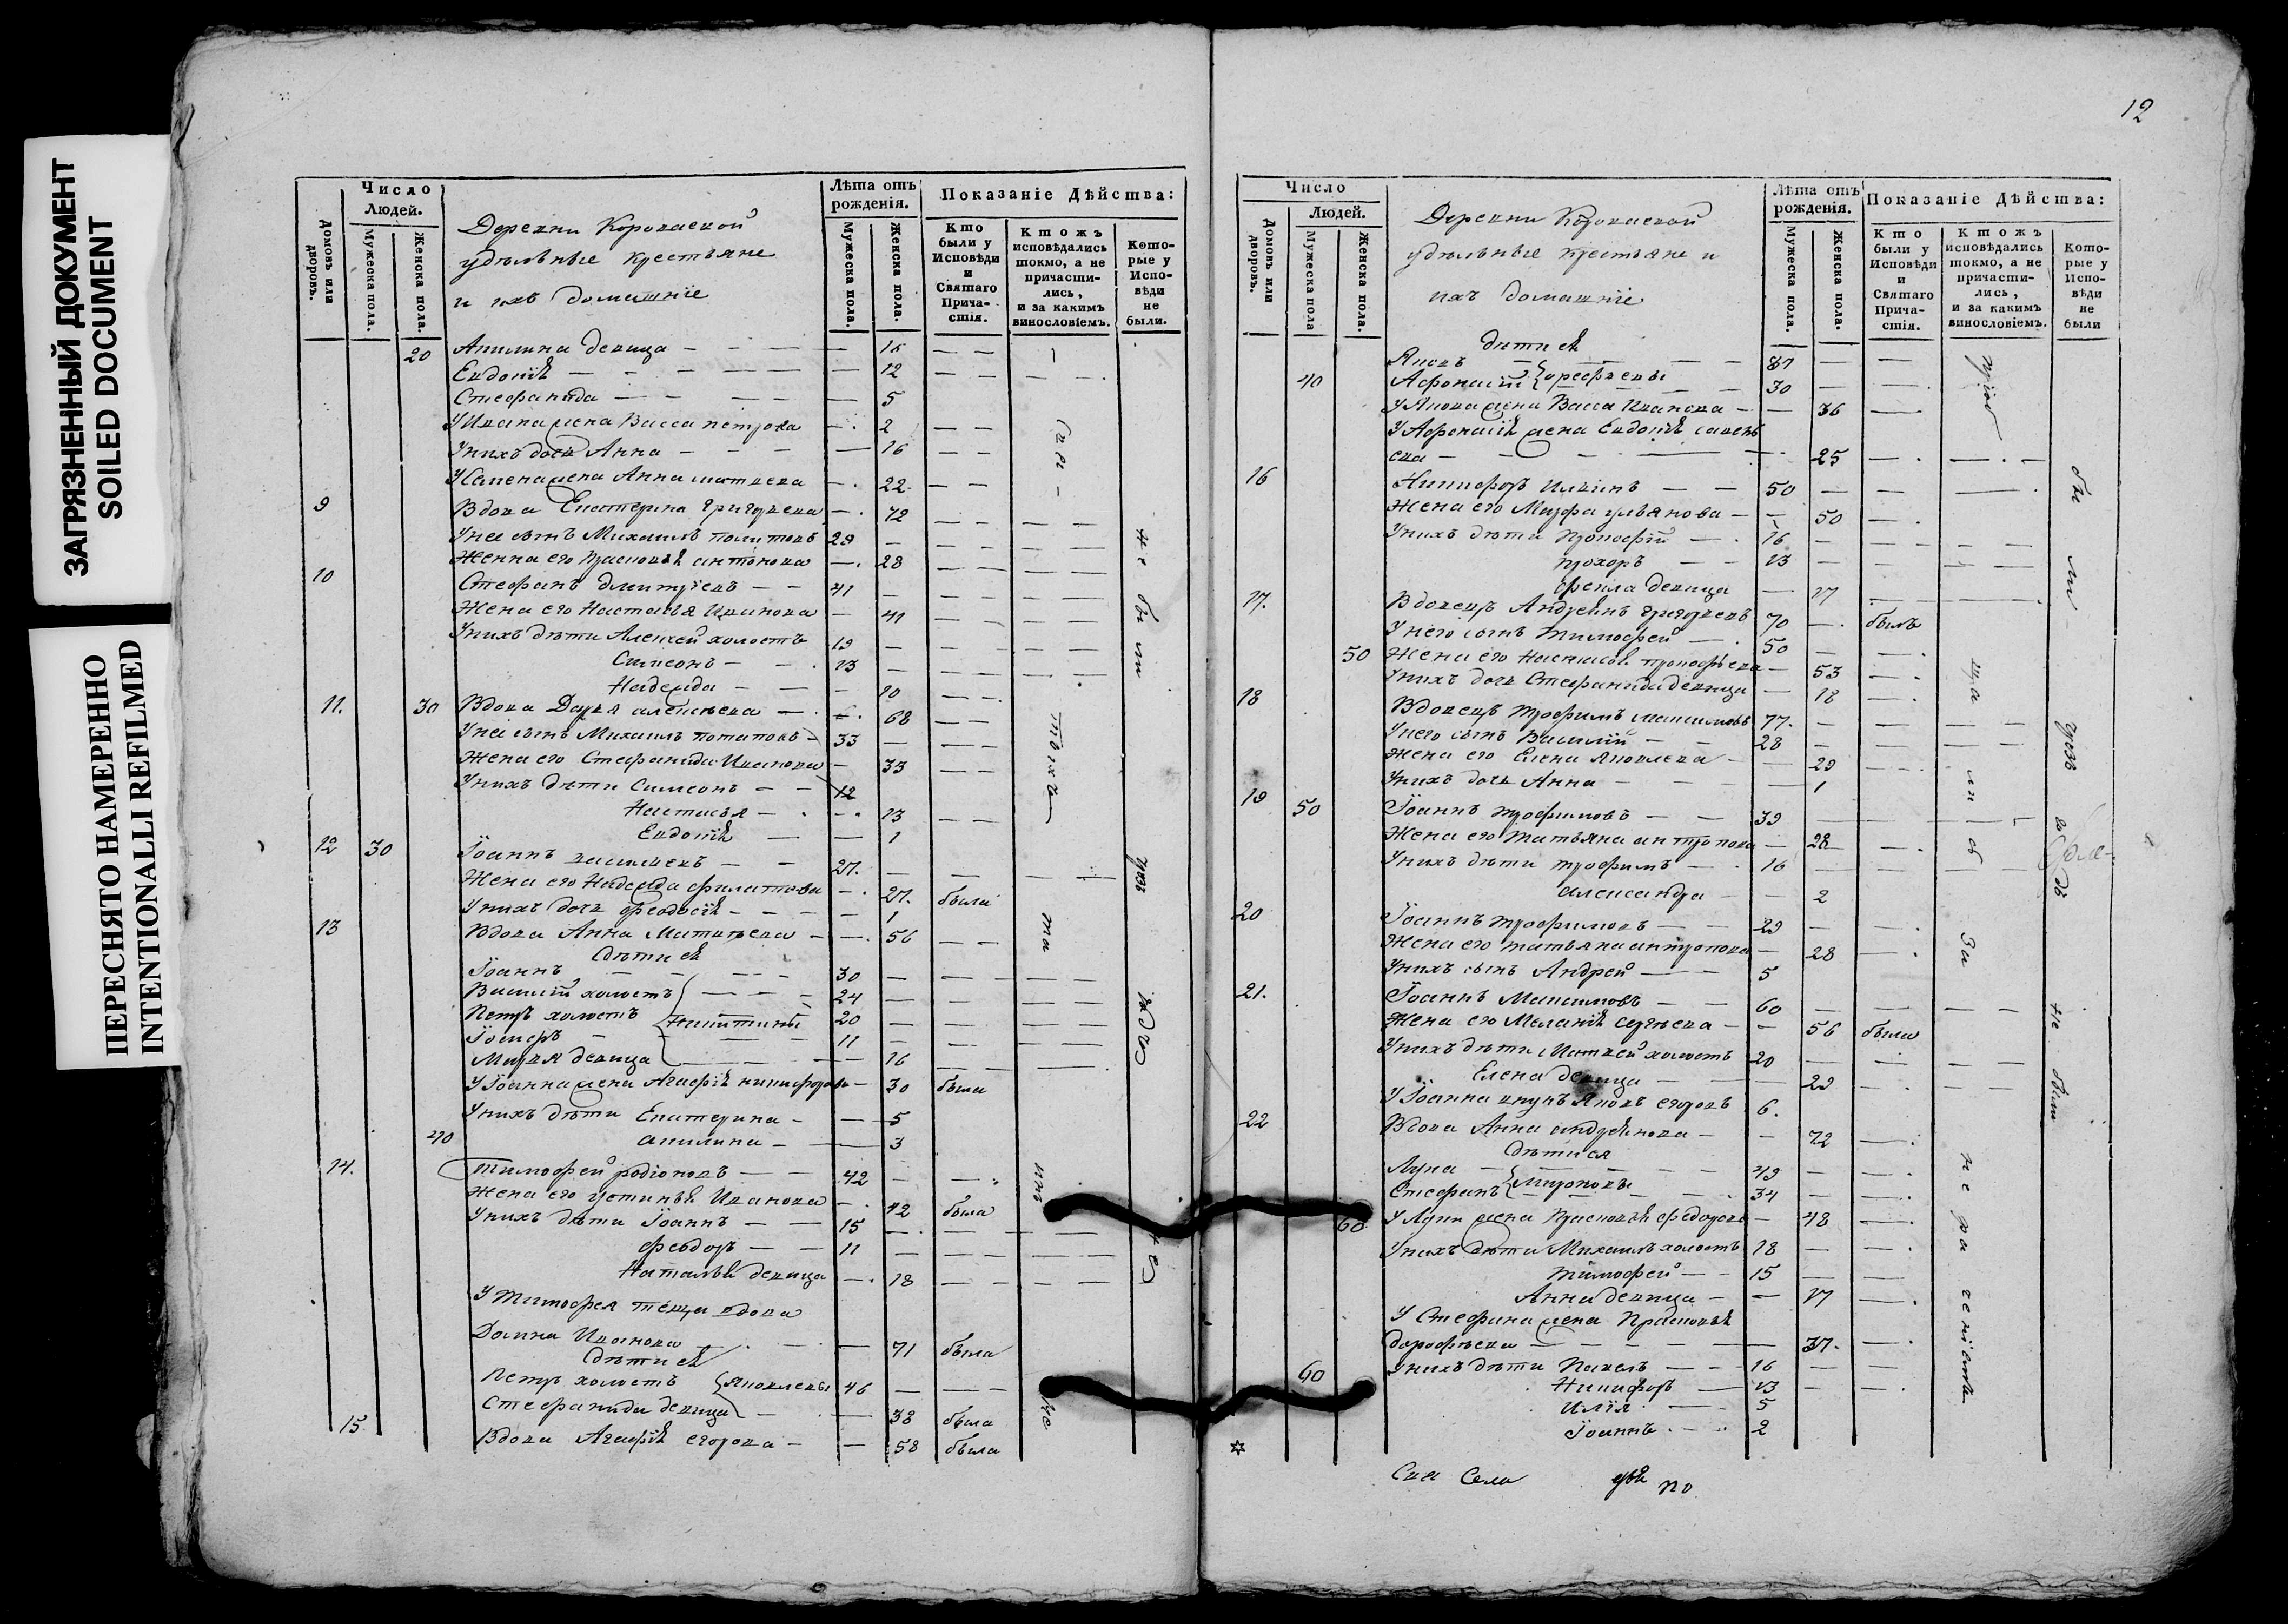 ЗАГРЯЗНЕННЫЙ ДОКУМЕНТ
SOILED DOCUMENT
ПЕРЕСНЯТО НАМЕРЕННО
INTENTIONALLI REFILMED
12
Число Людей.
Домовъ или дворовъ.
Мужеска пола.
Женска пола.
Деревни
удѣльные крестьяне
и ихъ домашніе
Лѣта отъ рожденія.
Мужеска пола.
Женска пола.
Показаніе Дѣйства:
Кто были у Исповѣди и Святаго Причастія.
Ктожъ исповѣдались токмо, а не причастились, и за какимъ винословіемъ.
Которые у Исповѣди не были.
20 Акилина девица — 15
Евдокія — 12
Стефанида — 5
У Ивана жена Васса петрова — 2
У нихъ дочь Анна — 16
жена Анна матвеева — 22
9 Вдова Екатерина григорьева — 72
У нея сынъ Михаилъ 29
Женна его Прасковья антонова — 28
10 Стефанъ дмитріевъ — 41
Жена его Наталья Иванова — 41
У нихъ дѣти Алексей холостъ 19
Симеонъ — 13
Надежда — 20
11. 30 Вдова Дарья алексѣева — 68
У нея сынъ Михаилъ потаповъ 33
Жена его Стефанида Иванова — 33
У нихъ дѣти Симеонъ — 12
Настасья — 13
Евдокія — 1
12 30 Іоаннъ васильевъ — 27.
Жена его Надежда филатова — 27. была
У нихъ дочь феодосія — 1
13 Вдова Анна Матвѣева — 56
Дѣти ея
Іоаннъ — 30
Василій холостъ — 24
Петръ холостъ Никитины 20
— 11
Марья девица — 16
У Іоанна жена Агафія никифорова — 30 была
У нихъ дѣти Екатерина — 5
40 акилина — 3
14. Тимофей родіоновъ — 42
Жена его устинья Иванова — 42 была
У нихъ дѣти Іоаннъ — 15
феодоръ — 11
Наталья девица — 18
У Тимофея теща вдова
Домна Иванова — 71 была
Дѣти ея
Петръ холостъ Яковлевы 46
Стефанида девица — 38 была
15 Вдова Агафія егорова — 58 была
не были
Число Людей.
Домовъ или дворовъ.
Мужеска пола
Женска пола.
Деревни
удѣльные крестьяне и
ихъ домашніе
Лѣта отъ рожденія.
Мужеска пола.
Женска пола.
Показаніе Дѣйства:
Кто были у Исповѣди и Святаго Причастія.
Ктожъ исповѣдались токмо, а не причастились, и за какимъ винословіемъ.
Которые у Исповѣди не были
дѣти ея
Яковъ —
40 Афонасій орефьевы 30
У Якова жена Васса Иванова — 36
У Афонасія жена Евдокія савель
ева — 25
16 Никифоръ — 50
Жена его Марфа ульянова — 50
У нихъ дѣти Прокофій — 16
прохоръ — 13
фекла девица — 17
17. Вдовецъ Андреянъ григорьевъ 70 — былъ
У него сынъ Тимофей — 50
50 Жена его Настасья прокофьева — 53
У нихъ дочь Стефанида девица — 18
18 Вдовецъ Трофимъ Максимовъ 77.
У него сынъ Василій — 28
Жена его Елена Яковлева — 29
У нихъ дочь Анна — 1
19 50 Іоаннъ трофимовъ — 39
Жена его Татьяна антропова — 28
У нихъ дѣти трофимъ — 16
александра — 2
20 Іоаннъ Трофимовъ — 29
Жена его татьяна антропова — 28
У нихъ сынъ Андрей — 5
21. Іоаннъ Максимовъ — 60
Жена его Меланія сергѣева — 56 была
У нихъ дѣти Матвей холостъ 20
Елена девица — 29
У Іоанна внукъ Яковъ егоровъ 6.
22 Вдова Анна андреянова — 72
Дѣти ея
Лука — 49
Стефанъ Мироновы — 34
60. У Луки жена Прасковья федорова — 48
У нихъ дѣти Михаилъ холостъ 18
Тимофей — 15
Анна девица — 17
У Стефана жена Прасковья
дорофѣева — 37.
60 У нихъ дѣти Павелъ — 16
Никифоръ — 13
Илія — 5
Іоаннъ — 2
не были
за нераченіемъ
Села
по